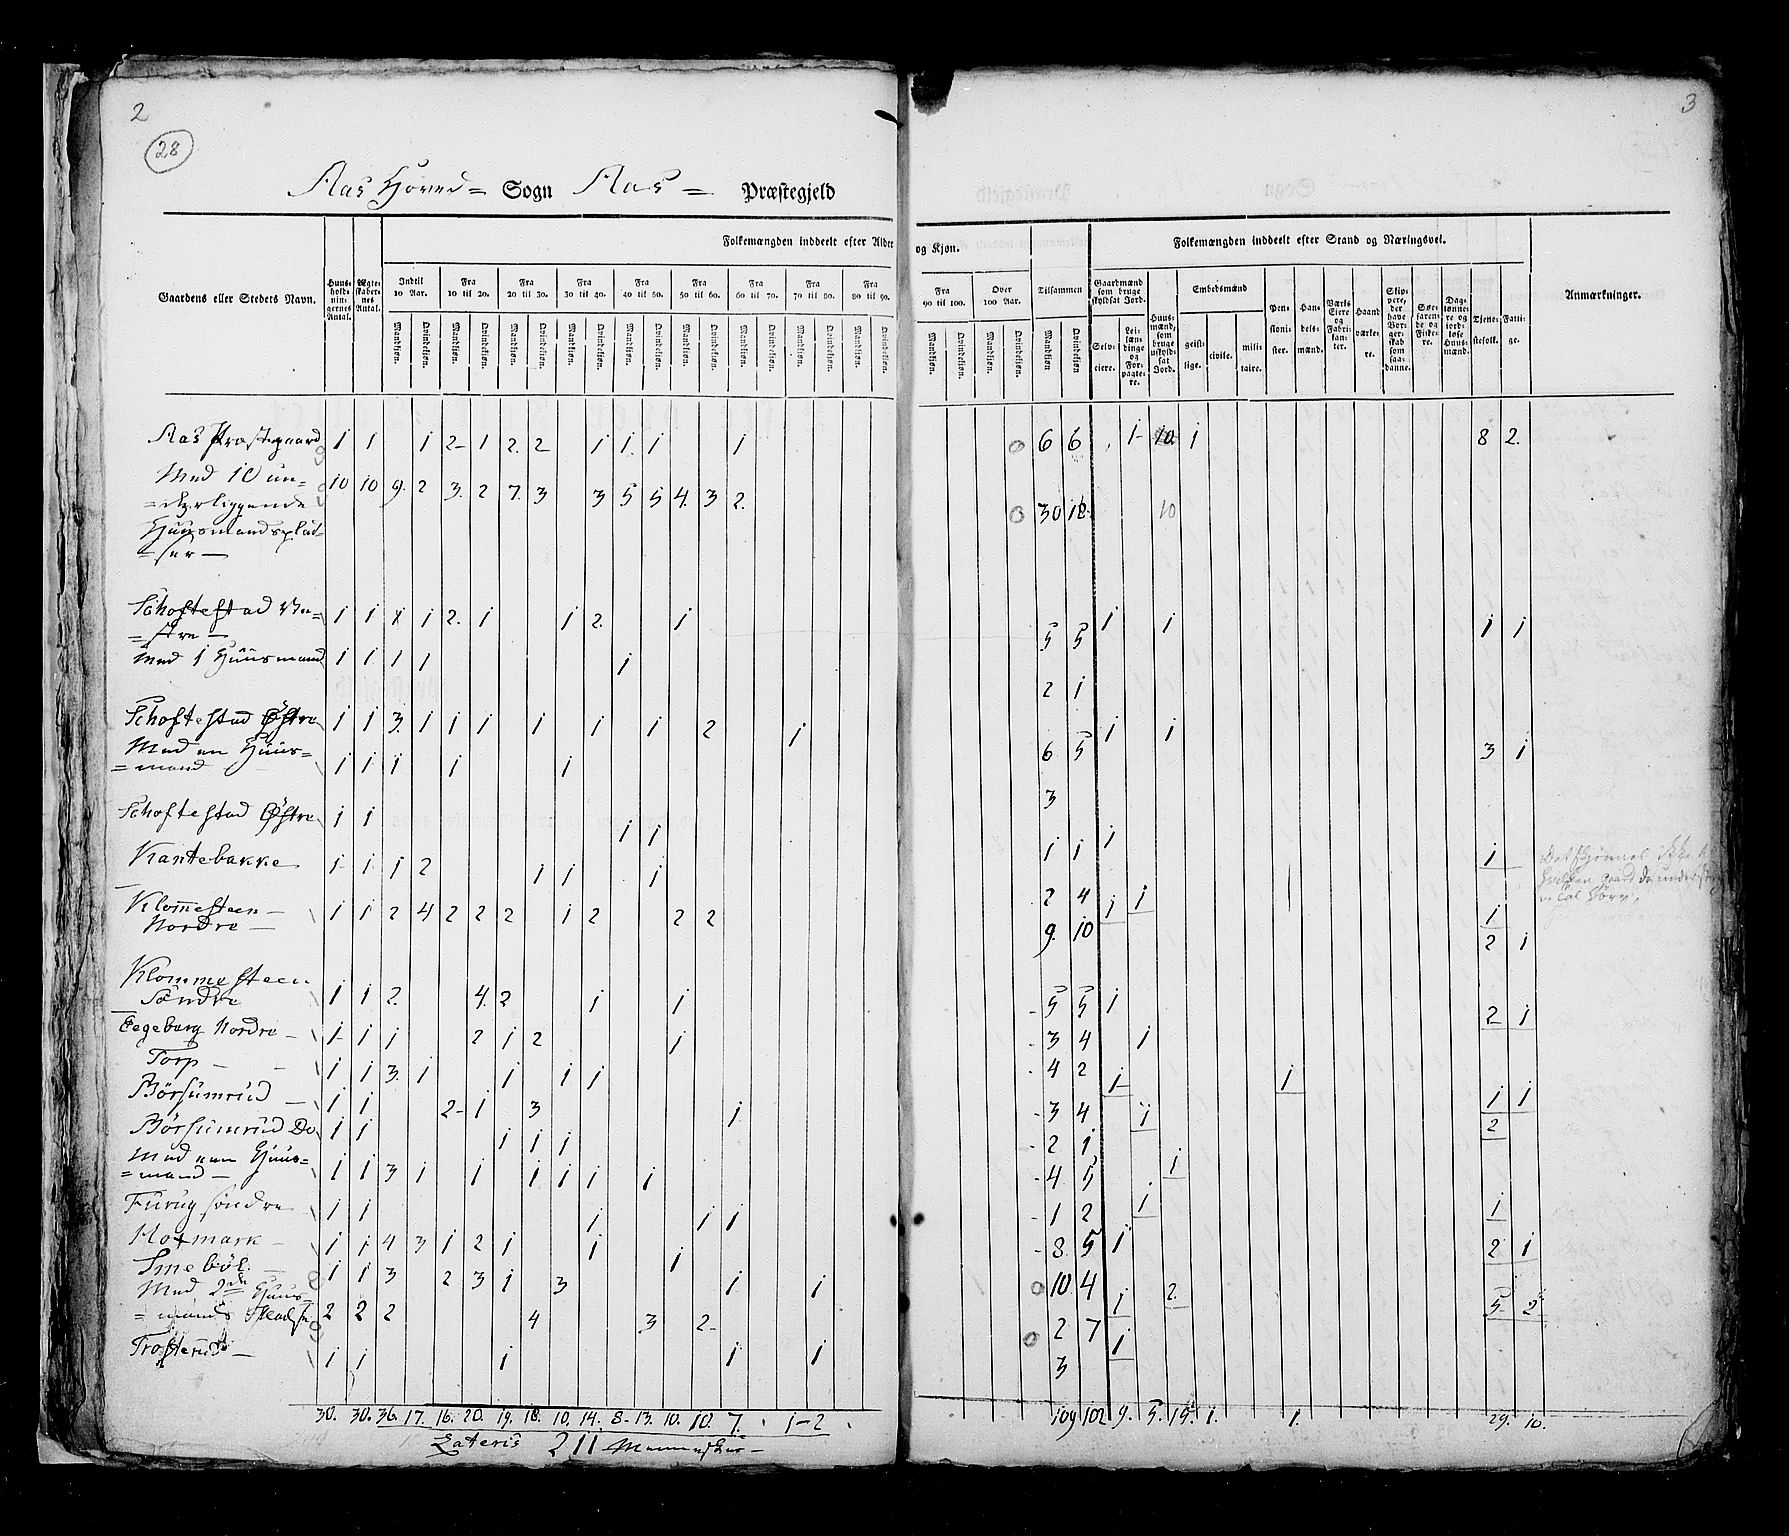 2
28
3
Aas Hoved= Sogn Aas = Præstegjeld
Folkemængden inddeelt efter Alder og Kjøn.
Folkemængden inddeelt efter Stand og Næringsvei.
Gaardens eller Stedets Navn.
Huusholdningernes Antal.
Ægteskabernes Antal.
Indtil 10 Aar.
Fra 10 til 20.
Fra 20 til 30.
Fra 30 til 40.
Fra 40 til 50.
Fra 50 til 60.
Fra 60 til 70.
Fra 70 til 80.
Fra 80 til 90.
Fra 90 til 100.
Over 100 Aar.
Tilsammen
Mandkjøn. Qvindekjøn.
Gaardmænd som bruge skyldsat Jord.
Selveiere.
Leilændinge og Forpagtere.
Huusmænd, som bruge uskyldsat Jord.
Embedsmænd
geistlige.
civile.
militaire.
Pensionister.
Handelsmænd.
Værks Eiere og Fabrikanter.
Haandværkere.
Skippere, der have Borgerskab som saadanne.
Søefarende og Fiskere.
Daglønnere og jordløse Huusmænd.
Tjenestefolk.
Fattige.
Anmærkninger.
Aas Præstegaard 1 1 1 2 1 2. 2 1 1 1 1 6 6 1 10. 1 8 2.
Med 10 un=
=derliggende 10 10 9. 2 3. 2 7. 3 3 5 5 4. 3 2. 30 18 10
Huusmandsplad=
=ser —
Schoftestad Ve=
=stre — 1 1 1 1 2. 1 1 2. 1 5 5 1 1 1 1
Med 1 Huusmand 1 1 1 1 1 2 1
Schoftestad Østre 1 1 3. 1 1 1 1 1 1 2 1 6 5 1 1 3 1
Med en Huus=
=mand 1 1 1 1 1 3
Schoftestad Østre 1 1 1 1 1 1 1 1
Kantebakke 1 1 1 2 1 1 1 2 4 1 1
Klommesteen —
Nordre — 1 1 2 4 2 2 2 1 2 2 2 9. 10 1 2 1
Klommesteen
Søndre 1 1 2. 4. 2 1 1 5 5 1 2 1
Eegeberg Nordre — 1 1 1 2 1 2 1 3 4 1
Torp — 1 1 3. 1 1 1 1 4 2 1 1 1 1
Børsumrud — 1 1 2 1 3 1 3 4 1 2
Børsumrud Do 1 1 1 1 1 2 1
Med een Huus=
=mand — 1 1 3 1 1 1 1 1 1 4 5 1
Furug søndre 1 1 1 1 1 1 2 1 1
Holmark — 1 1 4 3 1 2 1 1 1 8 5 1 2 1
Smebøl — 1 1 3 2 3 1 3 1 1 10 4 1 2. 5 2
Med 2de Huus=
=mands Pladse 2 2 2 4 3 2 2 7
Trosterud — 1 1 1 1 1 3 1
30. 30. 36. 17. 16. 20. 19. 18. 10. 14. 8 13. 10. 10. 7. 1 2 109 102 9. 5. 15. 1. 1. 29. 10.
Lateris 211 Mennesker —